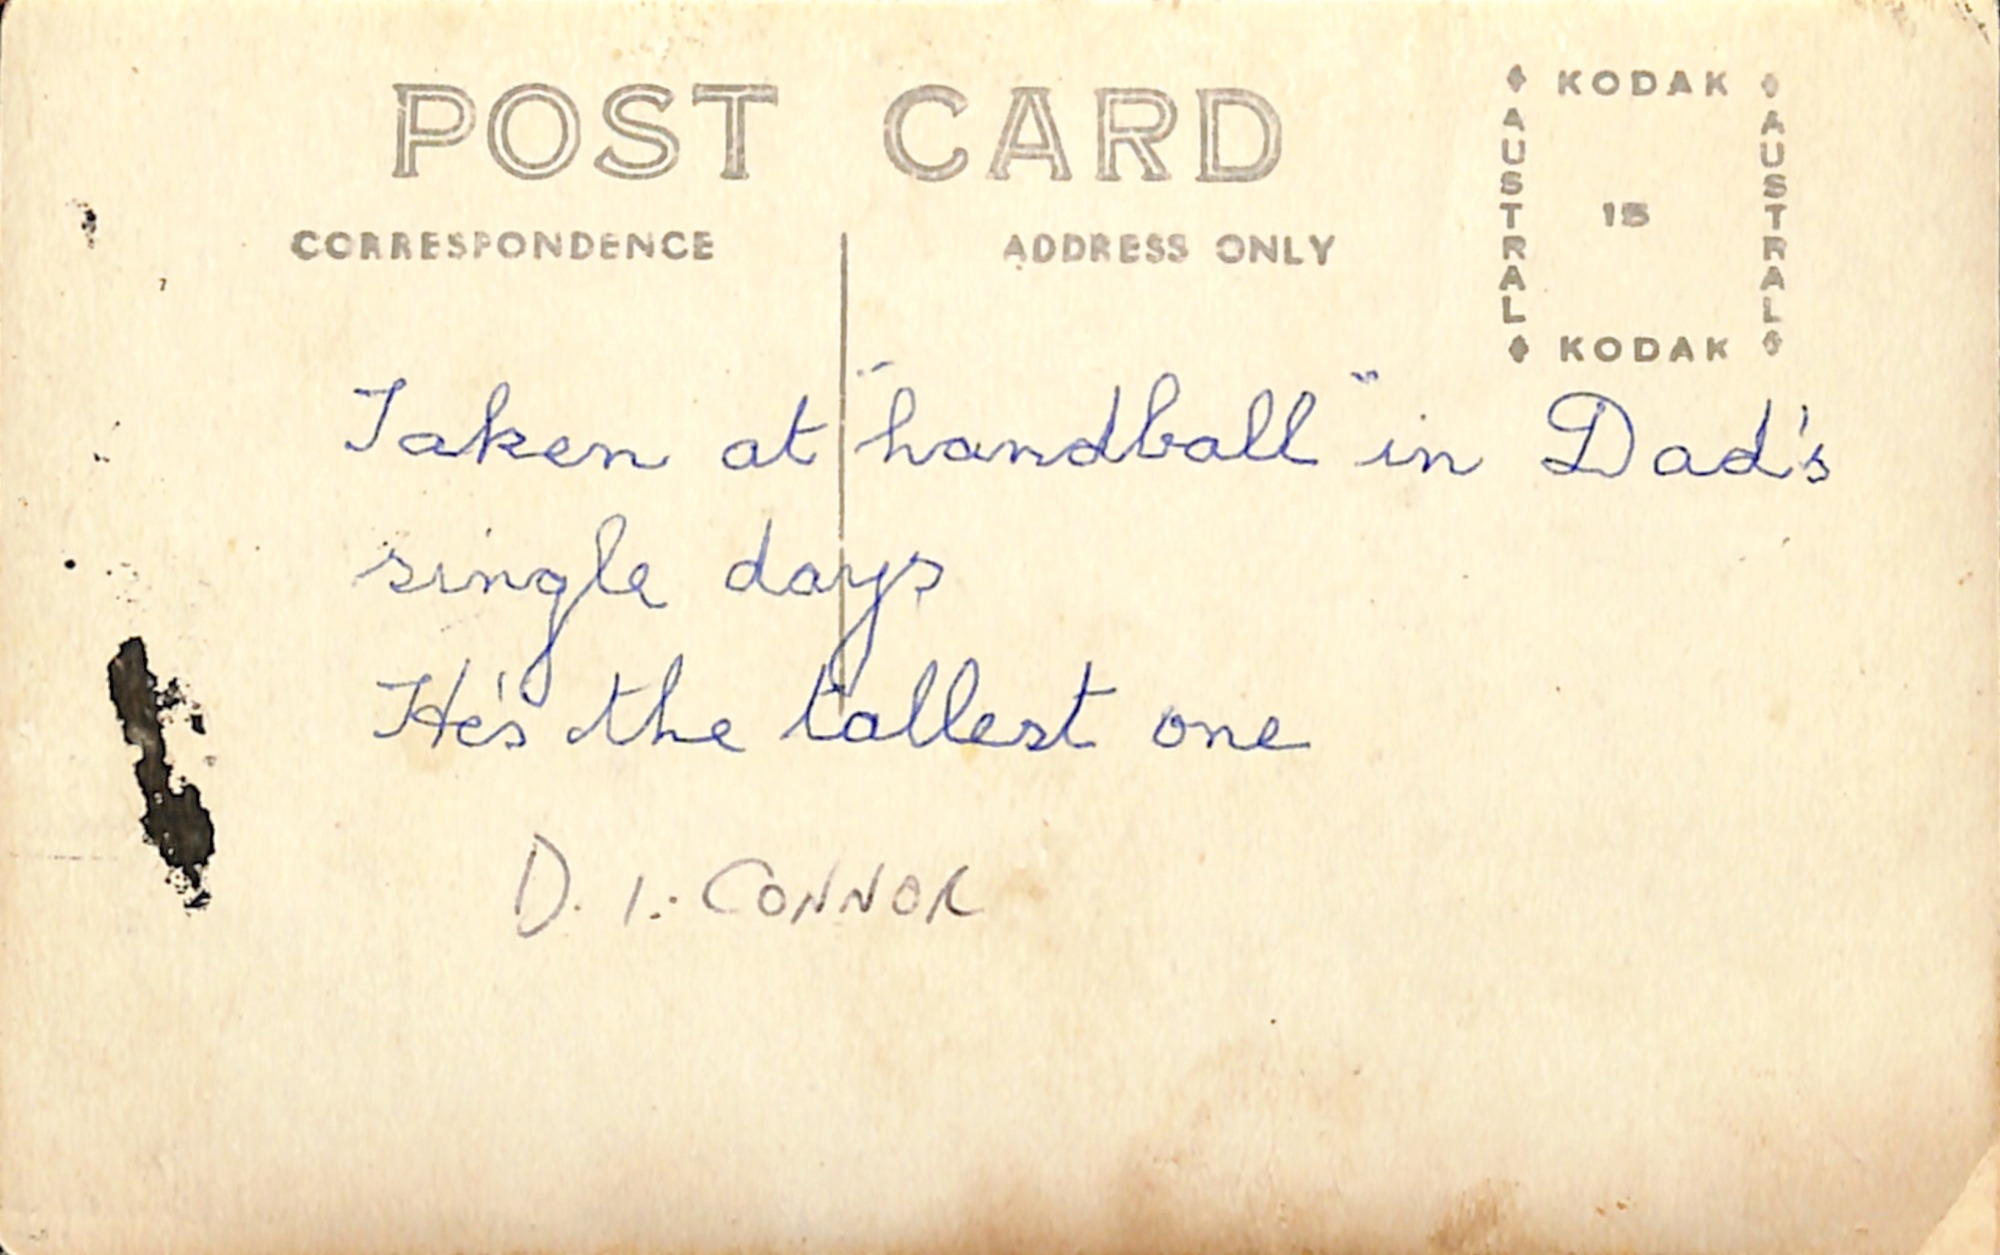 POST CARD
CORRESPONDENCE
ADDRESS ONLY
KODAK
AUSTRAL
AUSTRAL
15
KODAK
Taken at "handball" in Dad's
single days
He's the tallest one
D. I. CONNOR